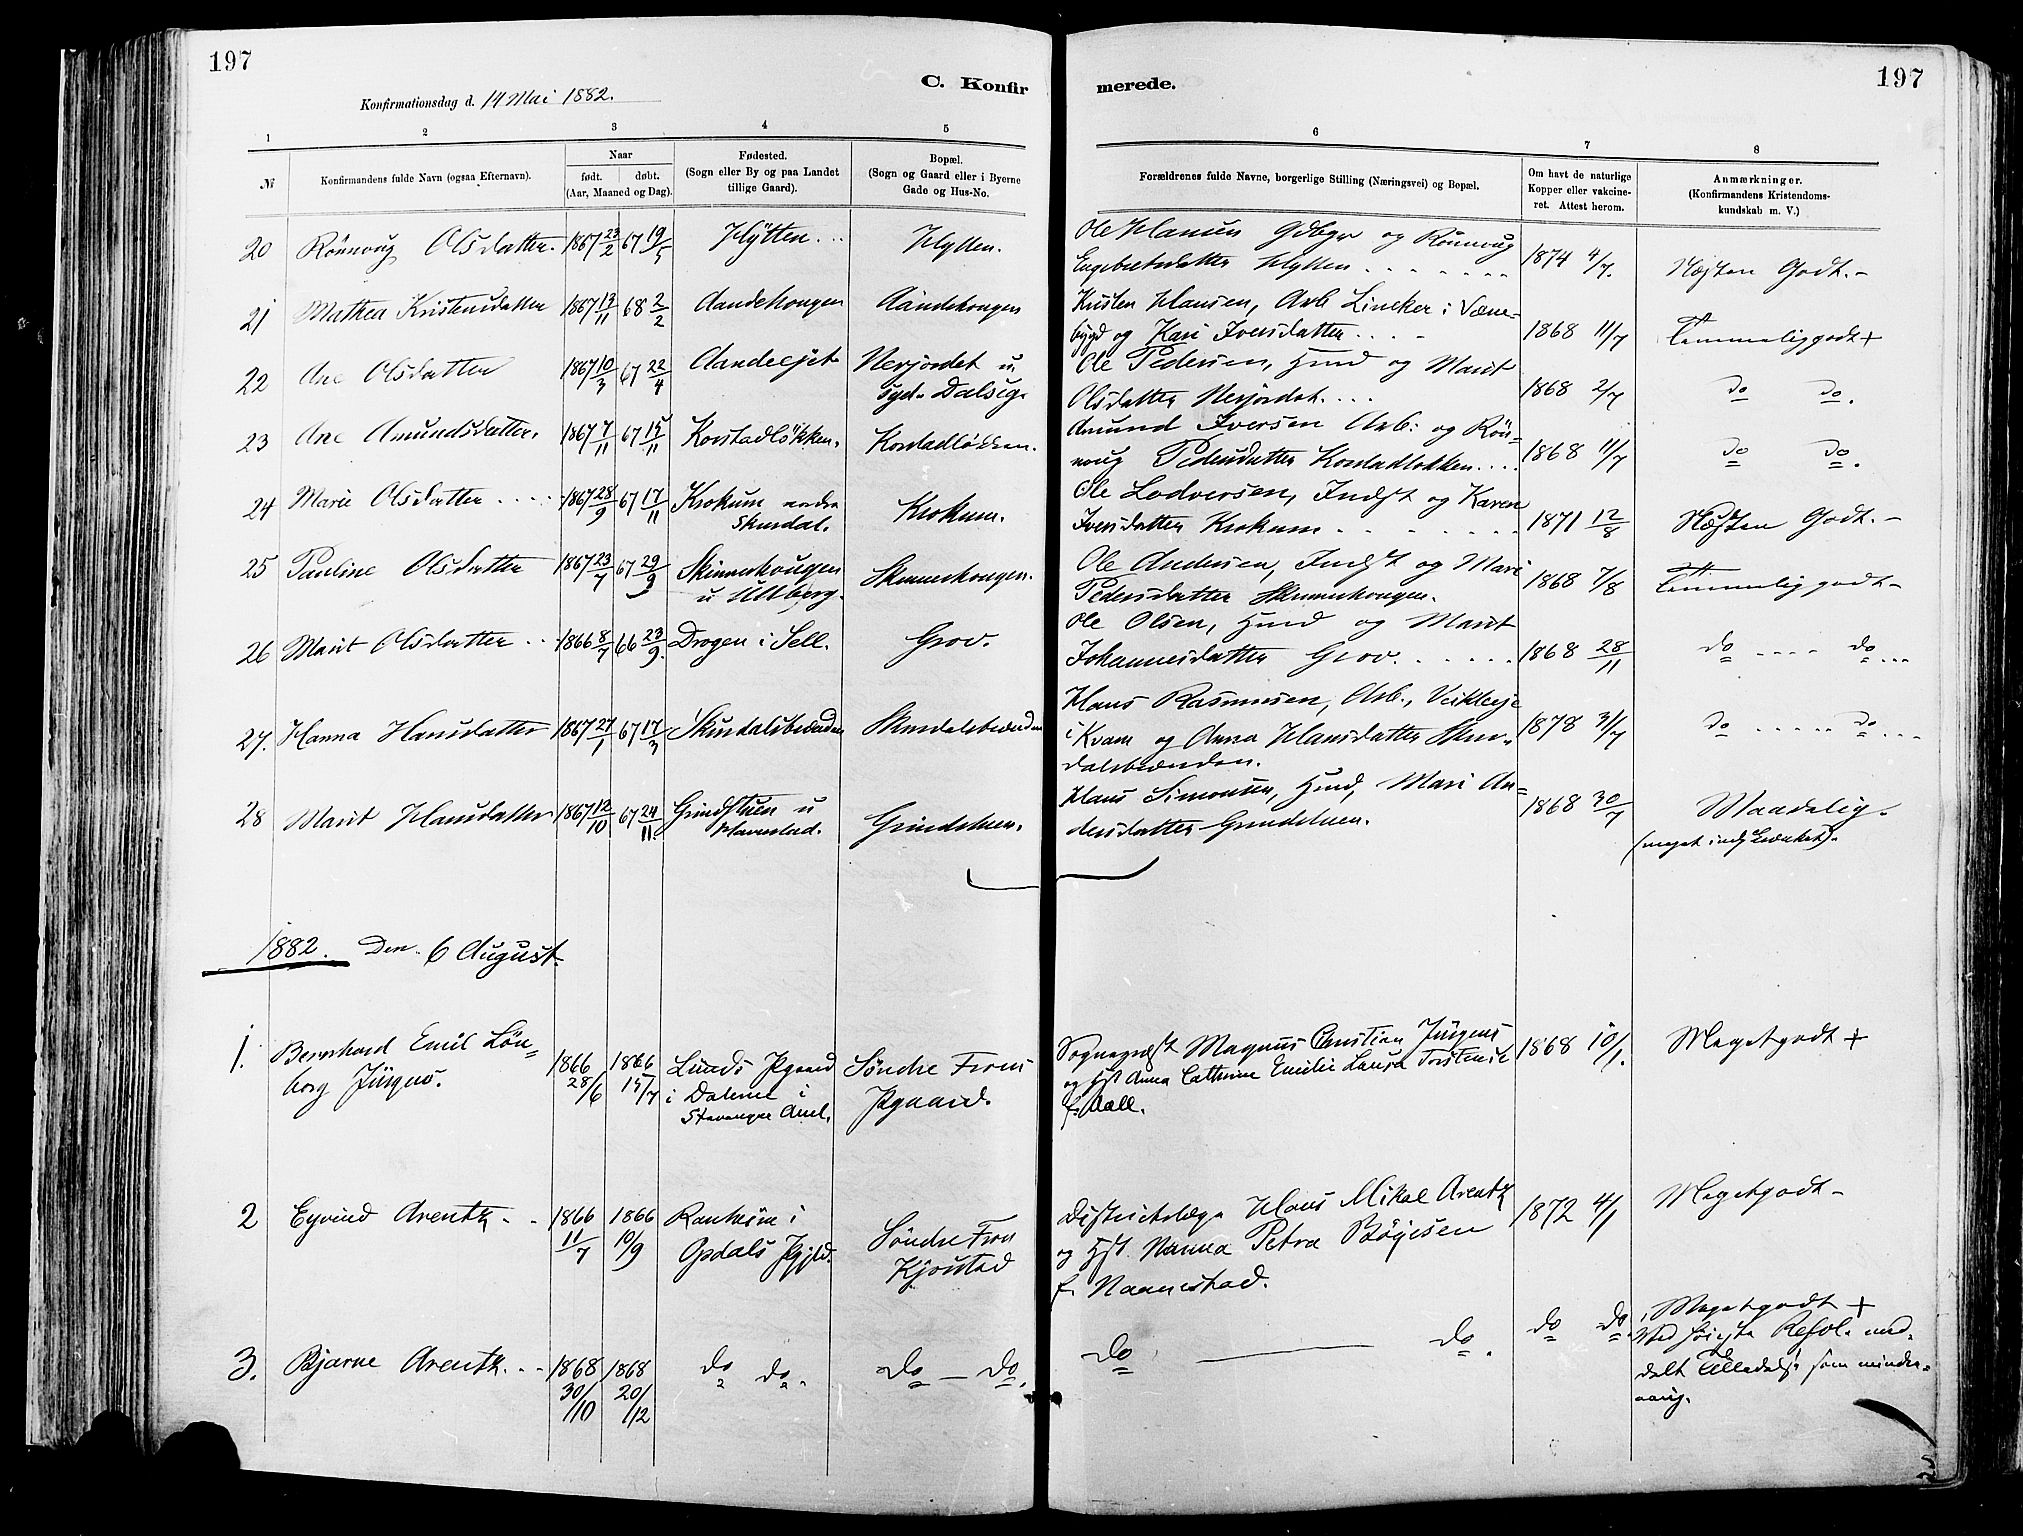 197
C. Konfir
merede.
197
Konfirmationsdag d. 14 Mai 1882.
1 2 3 4 5 6 7 8
№
Konfirmandens fulde Navn (ogsaa Efternavn).
Naar
født. døbt.
(Aar, Maaned og Dag).
Fødested.
(Sogn eller By og paa Landet
tillige Gaard).
Bopæl.
(Sogn og Gaard eller i Byerne
Gade og Hus-No.
Forældrenes fulde Navne, borgerlige Stilling (Næringsvei) og Bopæl.
Om havt de naturlige
Kopper eller vakcine-
ret. Attest herom.
Anmærkninger.
(Konfirmandens Kristendoms-
kundskab m. V.)
20 Rönnoug Olsdatter. 1867 23/2 67 19/5 Hÿtten... Hytten.
Ole Hansen Gdbgr og Rönnoug
Engebretsdatter Hytten....... 1874 4/7. Næsten Godt.-
21 Mathea Kristensdatter 1867 13/11 68 2/2 Aandehougen Aandehougen
Kristen Hansen, Arb
bygd og Kari Iversdatter.... 1868 11/7 Temmeliggodt +
22 Ane Olsdatter 1867 10/3 67 22/4 Nerjordet u.
syd. Dalseg.
Ole Pedersen, Husd og Marit
Olsdatter Nerjordet.... 1868 2/7 do do.
23 Ane Amundsdatter. 1867 7/11 67 15/11 Korstadlökken. Korstadløkken.
Amund Iversen Arb: og Rön=
noug Pedersdatter Korstadløkken.... 1868 11/7 do do.
24 Marie Olsdatter..... 1867 28/9 67 17/11 Krokum nordre
Skurdal. Krokum.
Ole Lodversen, Indst og Karen
Iversdatter Krokum....... 1871 12/8 Næsten Godt.-
25 Pauline Olsdatter 1867 23/7 67 29/9 Skinnerhougen
u Ulberg. Skinnerhougen.
Ole Andersen, Indst og Mari
Pedersdatter Skinnerhougen. 1868 7/8 Temmelig godt-
26 Marit Olsdatter... 1866 8/7 66 23/9. Drogen i Sell. Grov.
Ole Olsen, Husd og Marit
Johannesdatter Grov...... 1868 28/11 do.... do...
27. Hanna Hansdatter 1867 27/1 67 17/3 Skurdalsbrænden Skurdalsbrænden
Hans Rasmussen, Arb., Veikleje
i Kvam og Anna Hansdatter Skur=
dalsbrænden. 1878 31/7 do..... do...
28 Marit Hansdatter 1867 12/10 67 24/11. Grindstuen u
Harestad. Grindstuen.
Hans Simonsen, Husd, Mari An=
dersdatter Grindstuen. 1868 30/7 Maadelig.
(meget indskrænket).
1882. Den 6 August.
1. Bernhard Emil Lön=
borg Jürgens. 1866
28/6 1866
15/7 Lunds Pgaard
i Dalerne i
Stavanger Amt. Söndre Frons
Pgaard.
Sognepræst Magnus Christian Jürgens
og Hst Anna Cathrine Emilie Laura Torstense
f. Aall. 1868 10/1. Megetgodt +
2 Eyvind Arentz.. 1866
11/7 1866
19/9 Rankeim i
Opdals Pgjld. Söndre Fron
Kjorstad
Distriktslæge Hans Mikal Arentz
og Hst. Nanna Petra Bøyesen
f. Naannestad. 1872 4/1 Megetgodt-
3. Bjarne Arentz... 1868
30/10 1868
20/12 do do. do - do.
do do. do do. Megetgodt +
Ved høieste Resol. med=
delt Tilladelse som minder=
aarig.